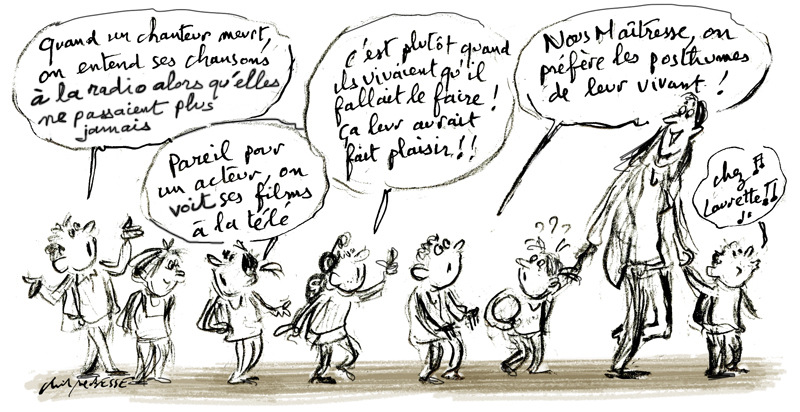 Quand un chanteur meurt,
on entend ses chansons
à la radio alors qu'elles
ne passaient plus
jamais
Pareil pour
un acteur, on
voit ses films
à la télé
C'est plutôt quand
ils vivaient qu'il
fallait le faire !
Ça leur aurait
fait plaisir !!
Nous Maîtresse, on
préfère les posthumes
de leur vivant !
chez
Laurette
???